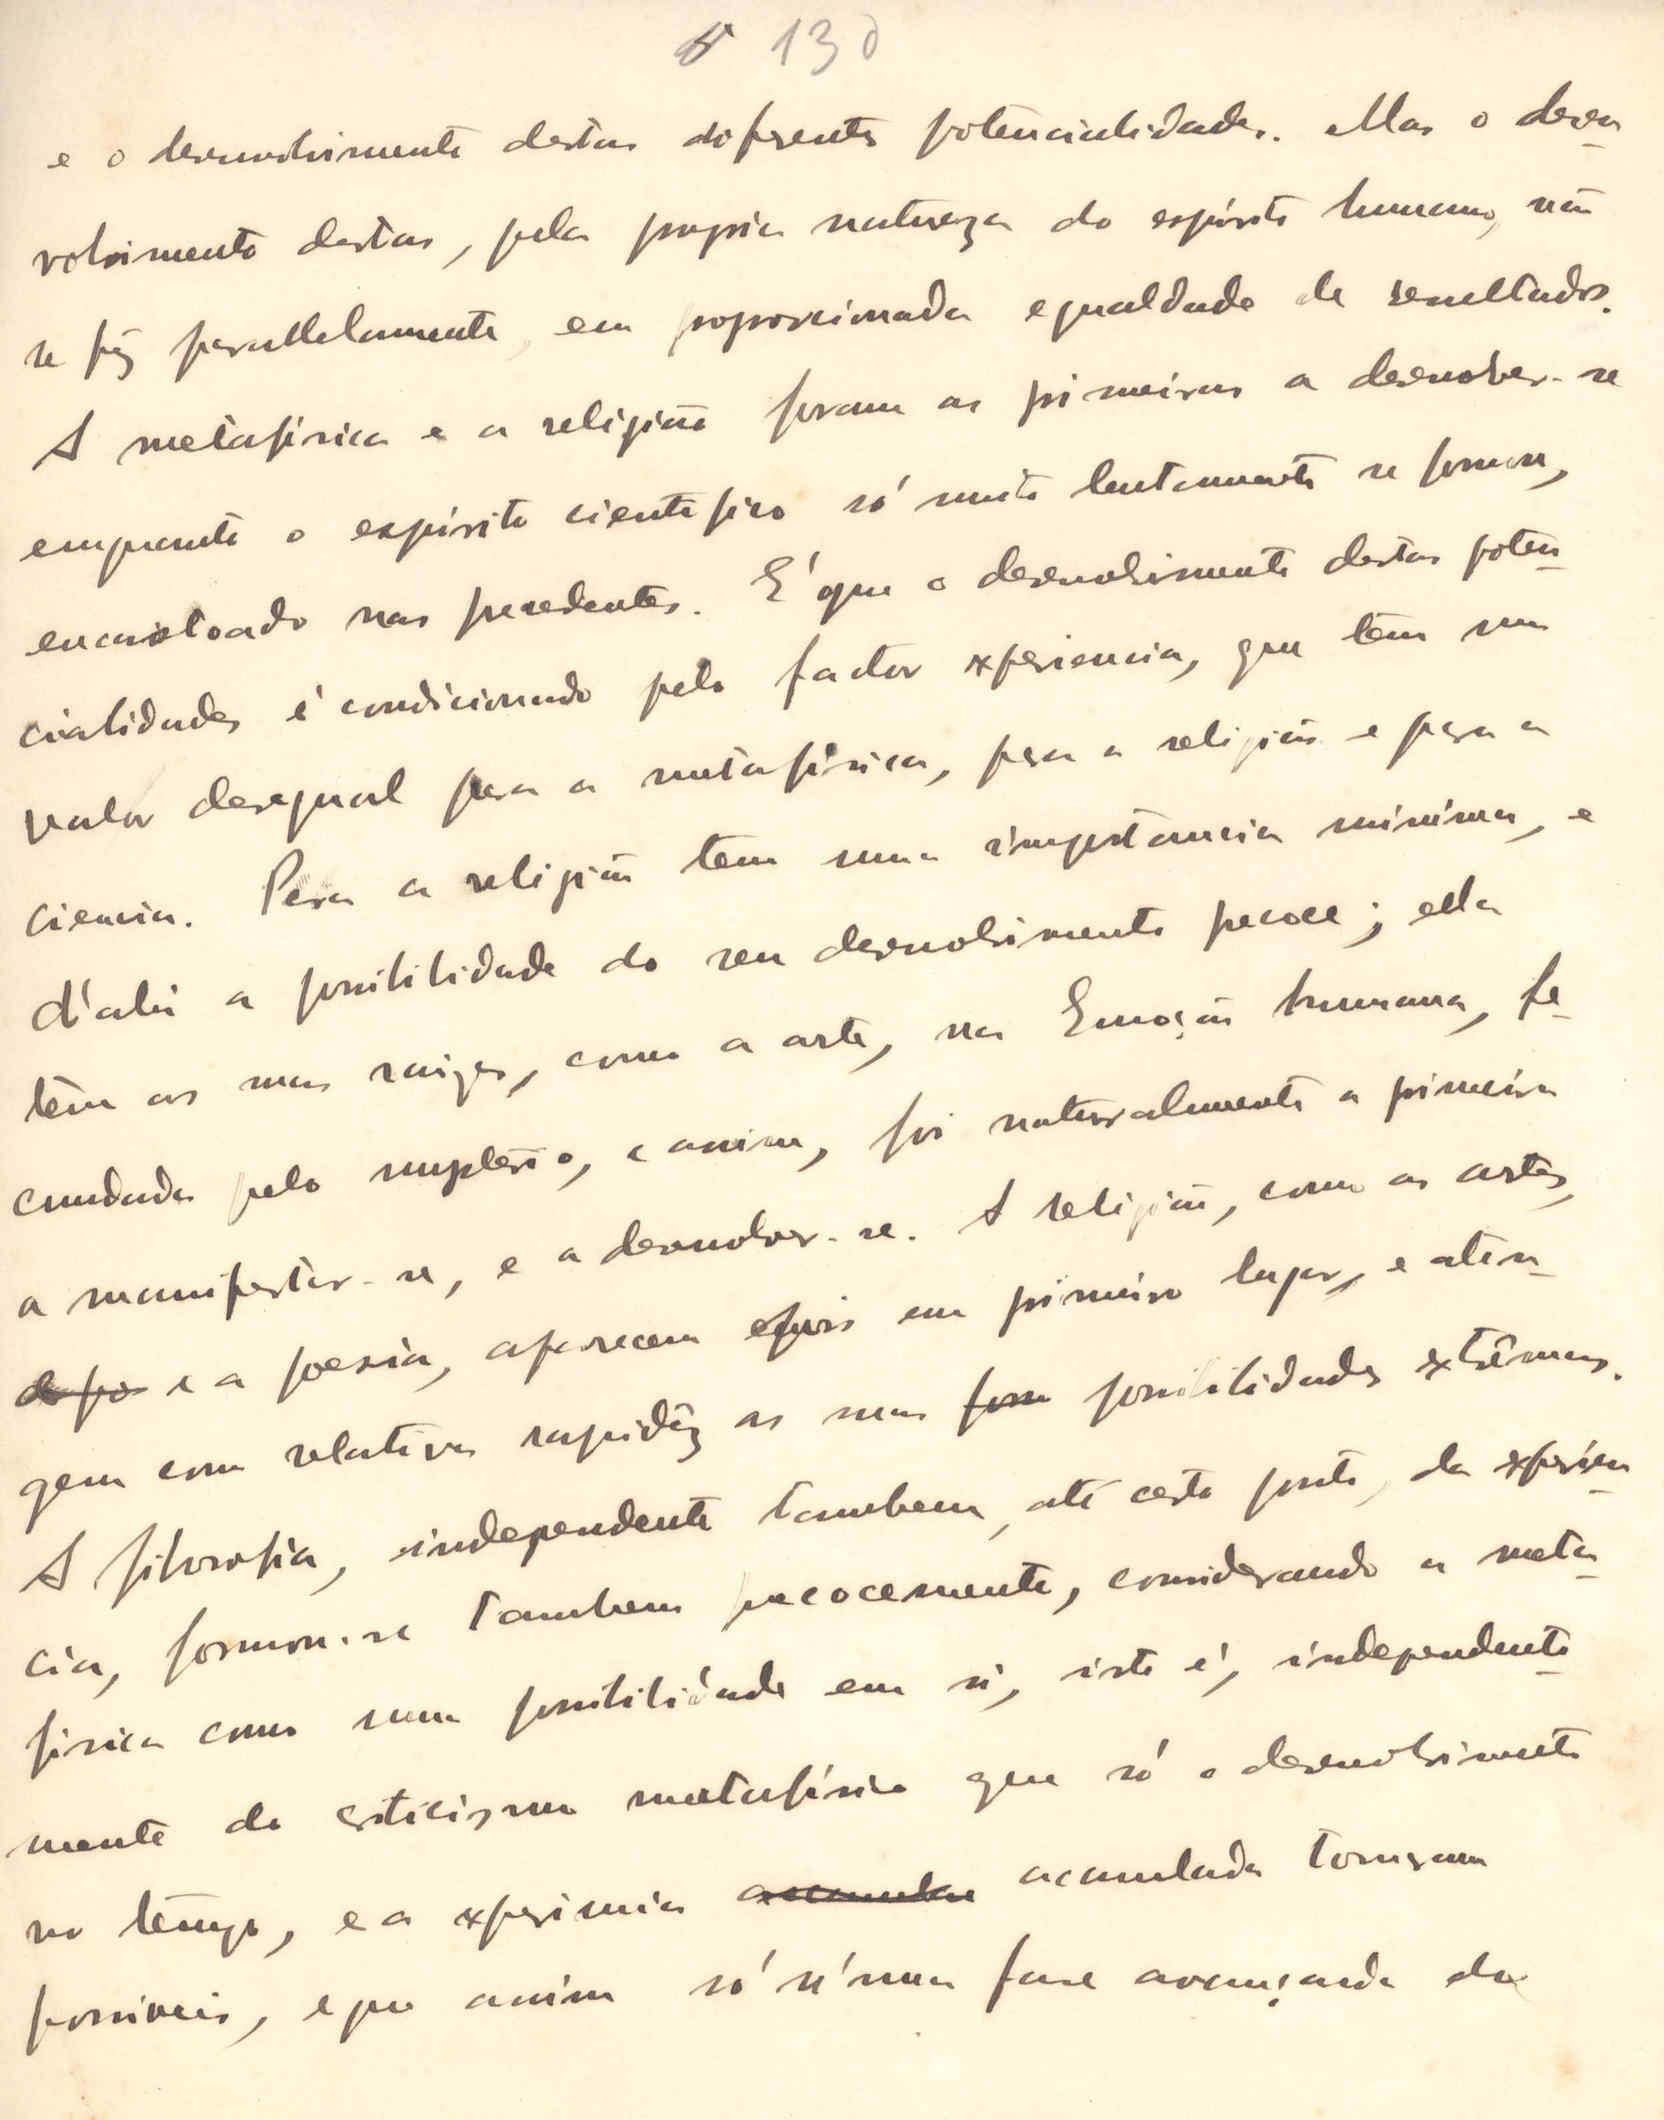 130
e o desenvolvimento destas diferentes potencialidades. Mas o desen-
volvimento destas, pela propria natureza do espirito humano, não
se fêz parallelamente, em proporcionada egualdade de resultados.
A metafisica e a religião foram as primeiras a desenvolver-se
emquanto o espirito cientifico só muito lentamente se formou,
encasistoado nas precedentes. E' que o desenvolvimento destas poten-
cialidades é condicionado pelo factor experiencia, que tem um
valor desegual para a metafísica, para a religião e para a
ciencia. Para a religião tem uma importancia minima, e
d'ahi a possibilidade do seu desenvolvimento precoce; ella
têm as suas raizes, como a arte, na Emoção humana, fe-
cundada pelo mysterio, e assim, foi naturalmente a primeira
a manifestar-se, e a desenvolver-se. A religião, como as artes,
e a poesia, aparecem pois em primeiro lugar, e atin-
gem com relativa rapidêz as suas possibilidades extrêmas.
A filosofia, independente tambem, até certo ponto, da experien-
cia, formou-se tambem precocemente, considerando a meta-
fisica como uma possibilidade em si, isto é, independente-
mente do criticismo metafísico que só o desenvolvimento
no têmpo, e a experiencia acumulada tornaram
possiveis, e que assim só n'uma fase avançada da